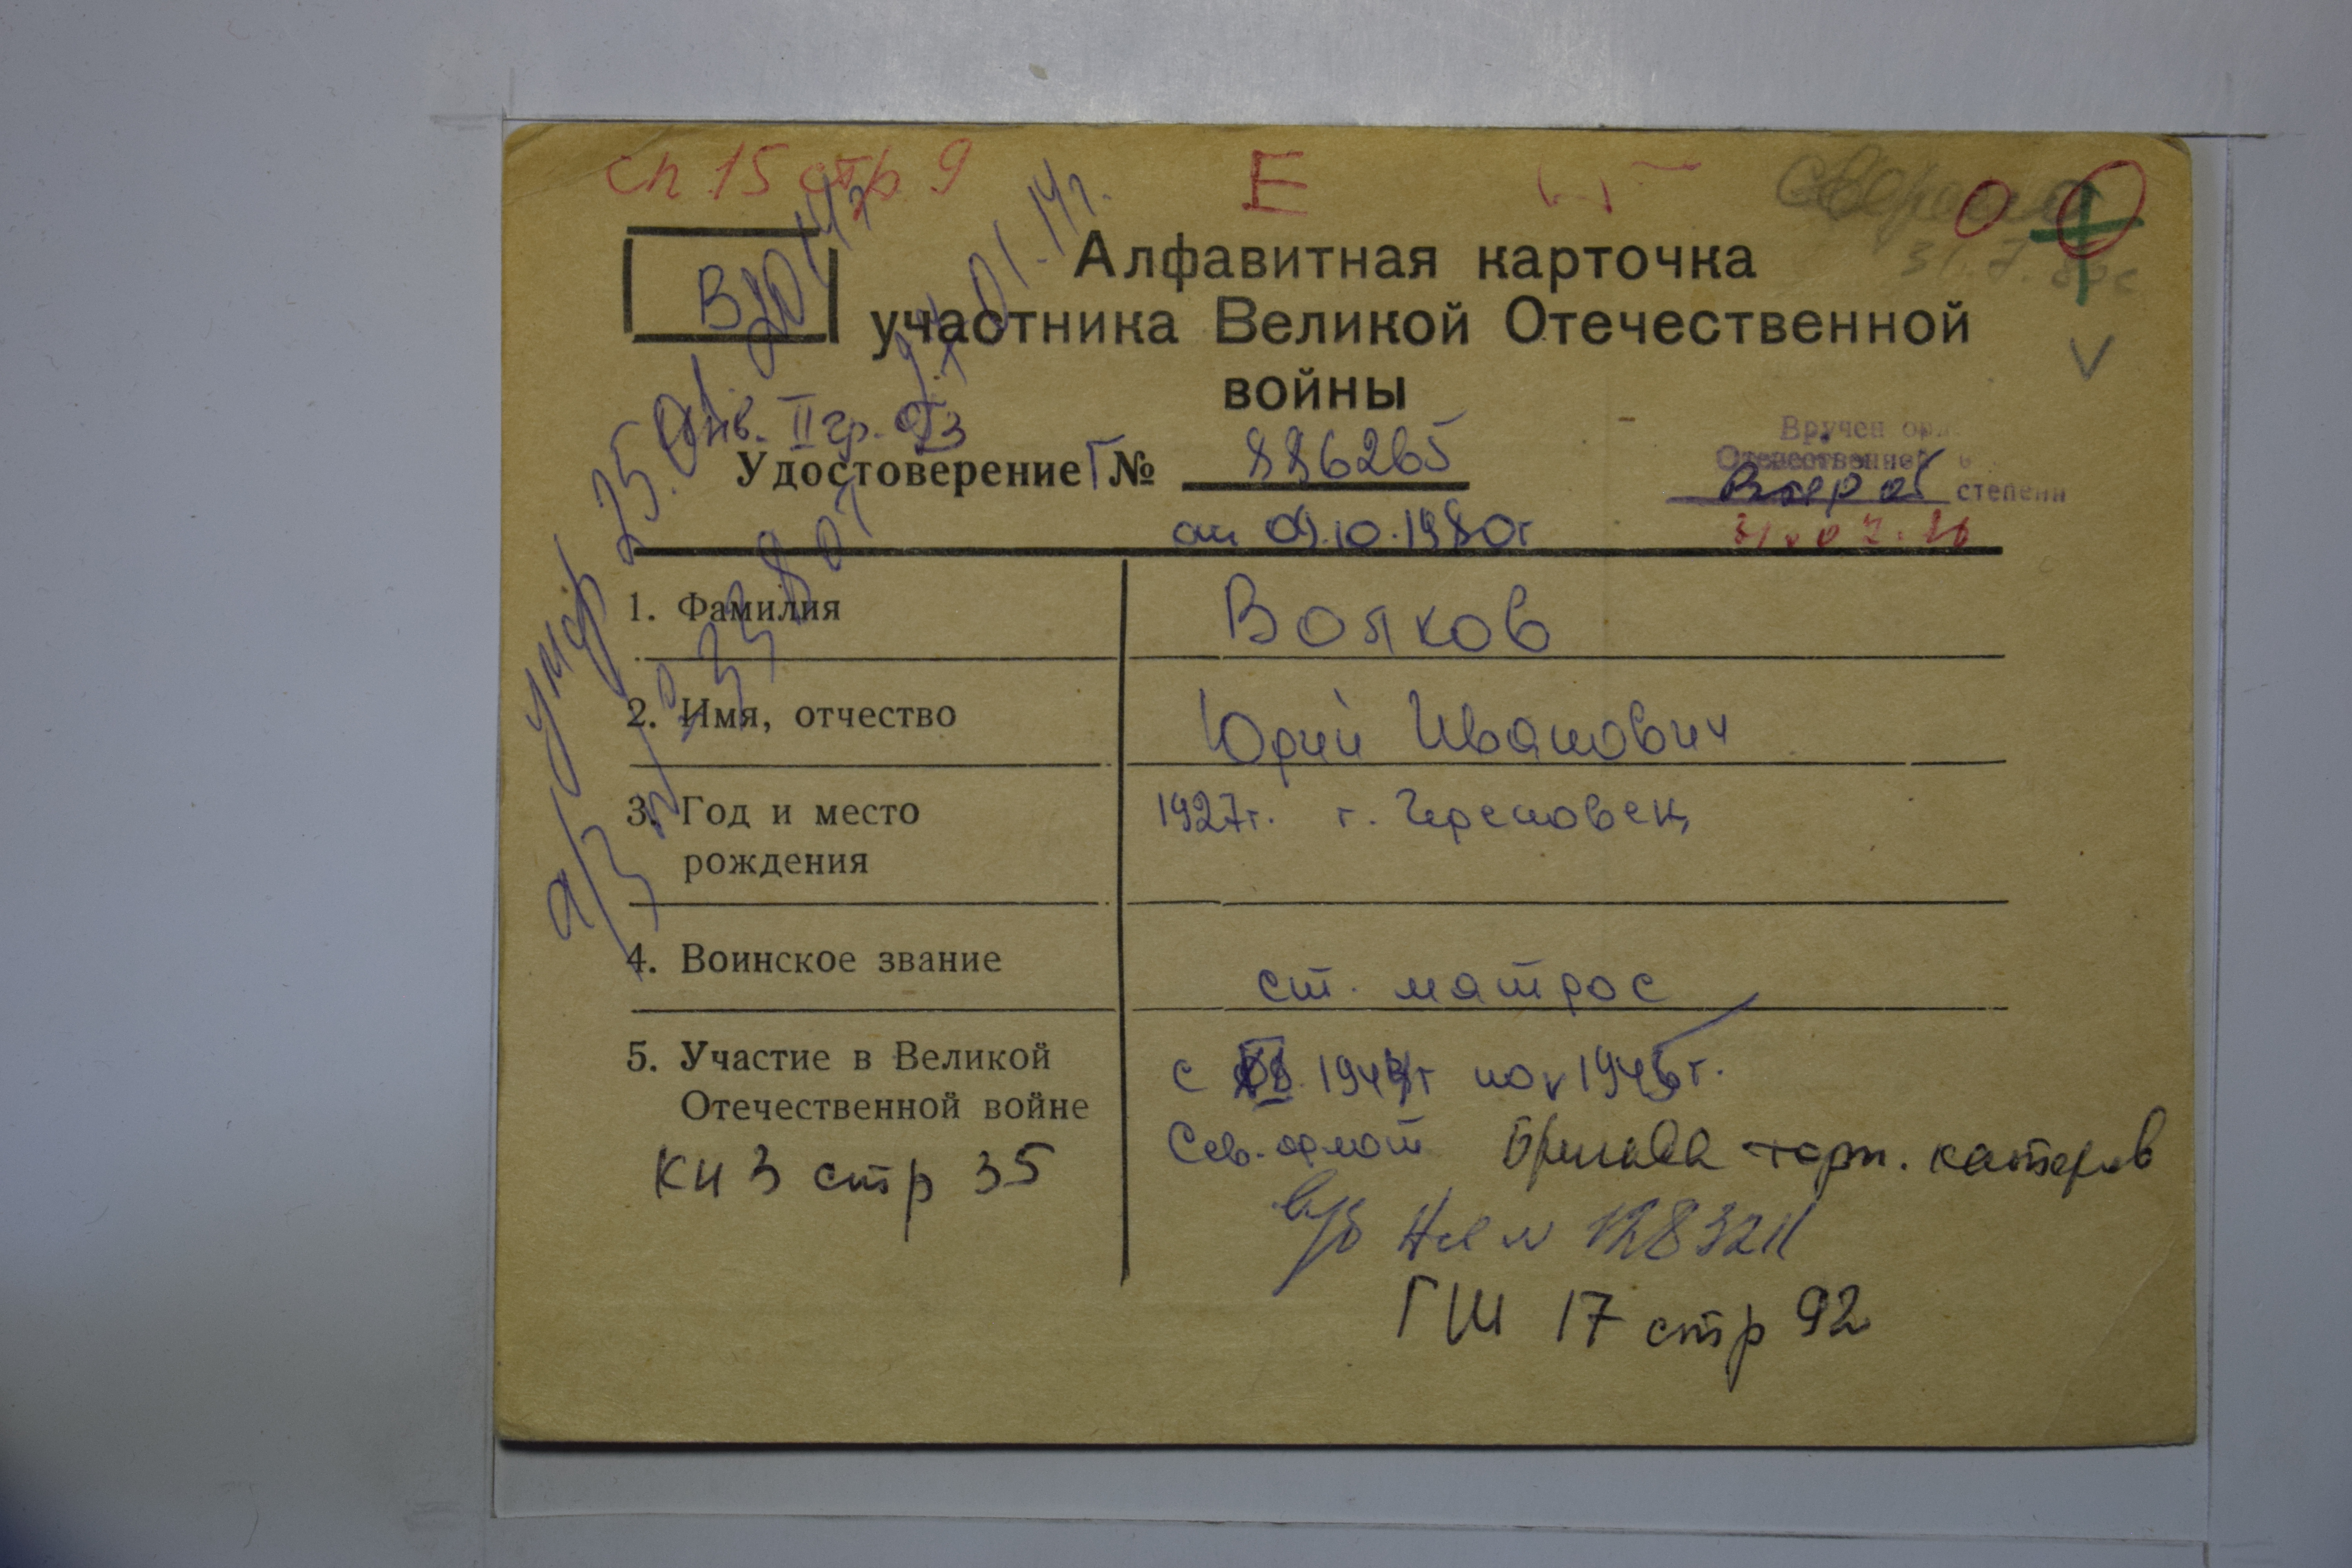 сп 15 стр. 9 Е
Алфавитная карточка
участника Великой Отечественной
войны
В
Инв. II гр.
Удостоверение Г № 886265
от 09.10.1980г
Вручен
Отечественной
Второй степени
31.07.86
умер 25.01.2014г
а/з
1. Фамилия Волков
2. Имя, отчество Юрий Иванович
3. Год и место рождения 1927г. г. Череповец
4. Воинское звание ст. матрос
5. Участие в Великой Отечественной войне
с 1944г по V 1945г.
Сев. флот Бригада торп. катеров
в/б НЯ № 128321
КН 3 стр 35
ГШ 17 стр 92